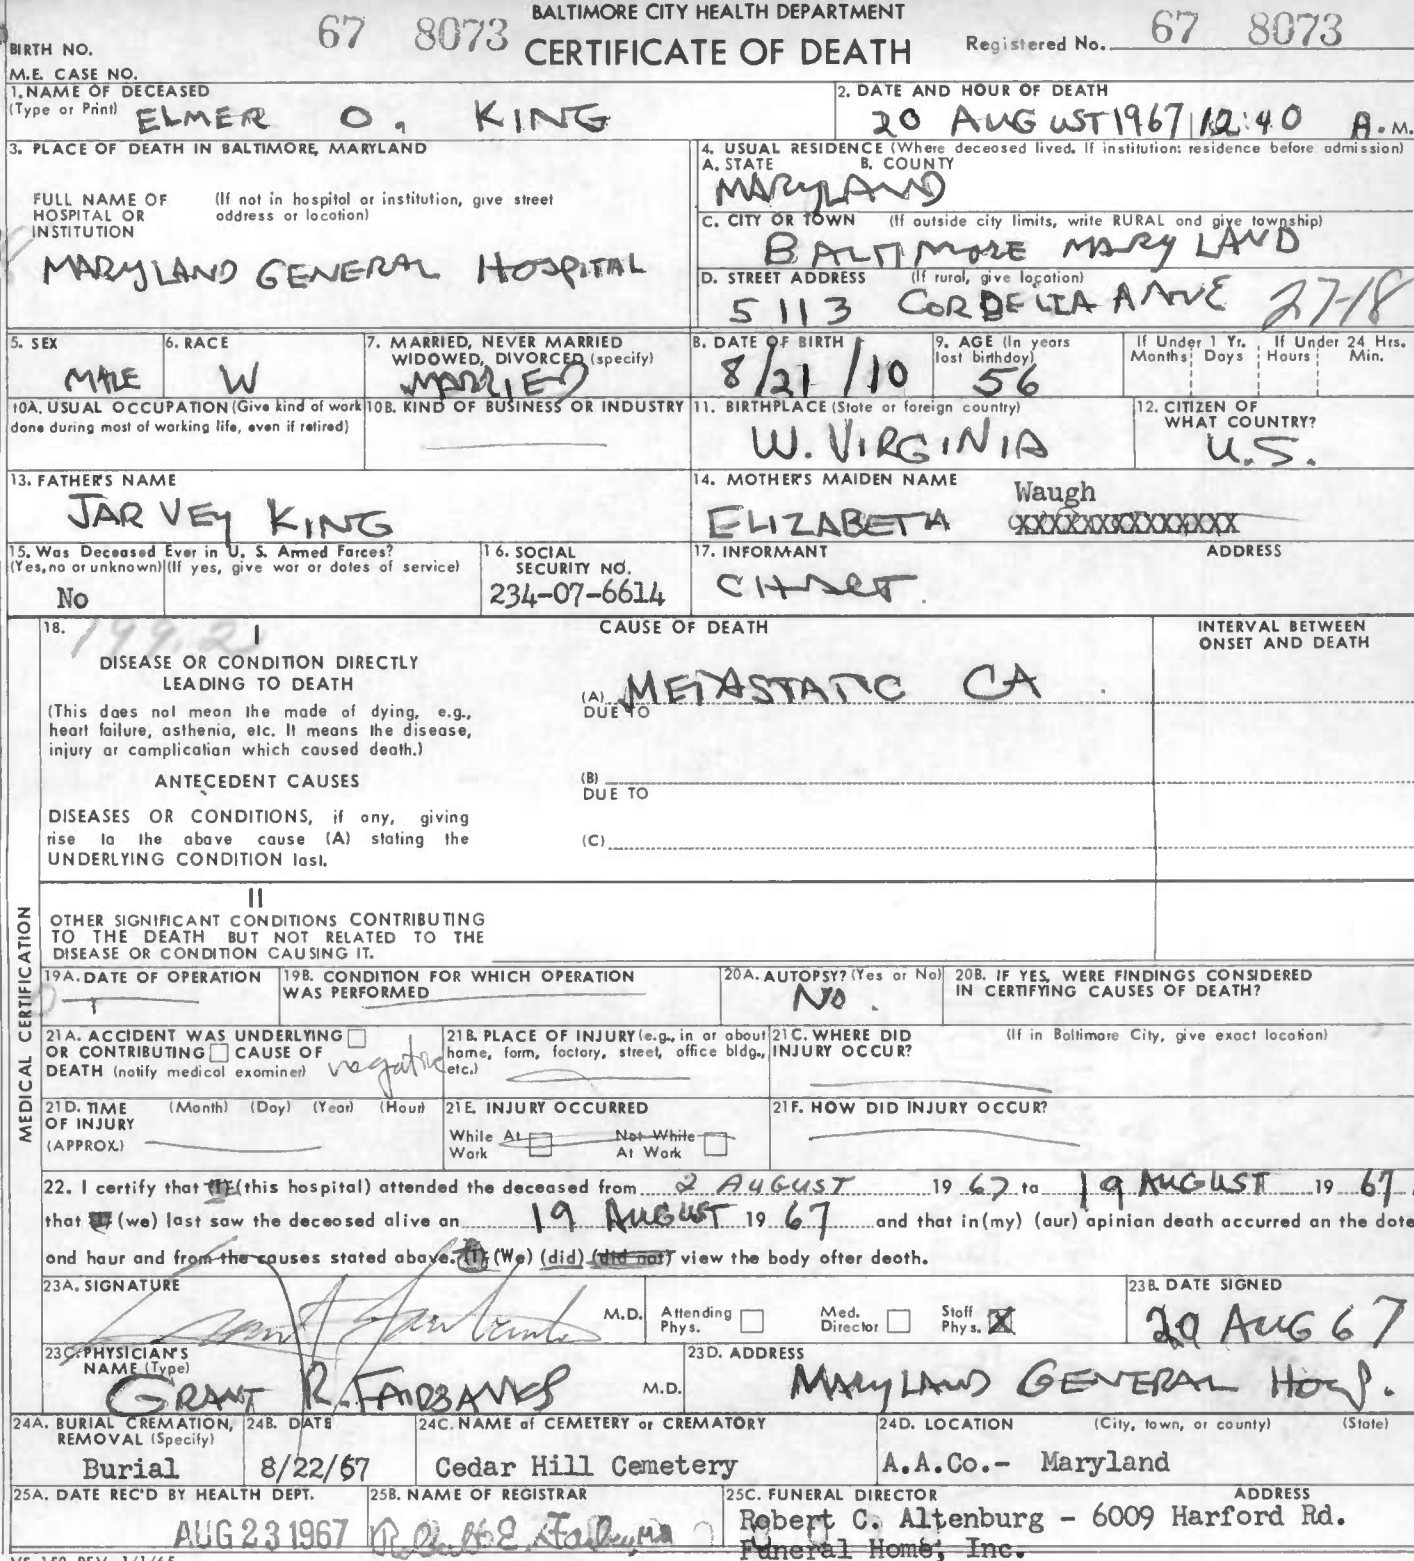 BALTIMORE CITY HEALTH DEPARTMENT
67 8073 CERTIFICATE OF DEATH Registered No. 67 8073
BIRTH NO.
M.E. CASE NO.
1. NAME OF DECEASED
(Type or Print) ELMER O. KING
2. DATE AND HOUR OF DEATH
20 AUGUST 1967 12:40 A.M.
3. PLACE OF DEATH IN BALTIMORE, MARYLAND
FULL NAME OF HOSPITAL OR INSTITUTION (If not in hospital or institution, give street address or location)
MARYLAND GENERAL HOSPITAL
4. USUAL RESIDENCE (Where deceased lived. If institution: residence before admission)
A. STATE B. COUNTY
MARYLAND
C. CITY OR TOWN (If outside city limits, write RURAL and give township)
BALTIMORE MARYLAND
D. STREET ADDRESS (If rural, give location)
5113 CORDELIA AAVE 27-18
5. SEX
MALE
6. RACE
W
7. MARRIED, NEVER MARRIED
WIDOWED, DIVORCED (specify)
MARRIED
8. DATE OF BIRTH
8/21/10
9. AGE (In years last birthday)
56
If Under 1 Yr. Months Days
If Under 24 Hrs. Hours Min.
10A. USUAL OCCUPATION (Give kind of work done during most of working life, even if retired)
10B. KIND OF BUSINESS OR INDUSTRY
11. BIRTHPLACE (State or foreign country)
W. VIRGINIA
12. CITIZEN OF WHAT COUNTRY?
U.S.
13. FATHER'S NAME
JARVEY KING
14. MOTHER'S MAIDEN NAME
Waugh
ELIZABETH
15. Was Deceased Ever in U. S. Armed Forces?
(Yes, no or unknown) (If yes, give war or dates of service)
No
16. SOCIAL SECURITY NO.
234-07-6614
17. INFORMANT ADDRESS
CHART
18. 199.2
I
DISEASE OR CONDITION DIRECTLY
LEADING TO DEATH
(This does not mean the mode of dying, e.g.,
heart failure, asthenia, etc. It means the disease,
injury or complication which caused death.)
ANTECEDENT CAUSES
DISEASES OR CONDITIONS, if any, giving
rise to the above cause (A) stating the
UNDERLYING CONDITION last.
CAUSE OF DEATH
(A) METASTATIC CA
DUE TO
(B)
DUE TO
(C)
INTERVAL BETWEEN
ONSET AND DEATH
MEDICAL CERTIFICATION
II
OTHER SIGNIFICANT CONDITIONS CONTRIBUTING
TO THE DEATH BUT NOT RELATED TO THE
DISEASE OR CONDITION CAUSING IT.
19A. DATE OF OPERATION
19B. CONDITION FOR WHICH OPERATION
WAS PERFORMED
20A. AUTOPSY? (Yes or No)
No.
20B. IF YES, WERE FINDINGS CONSIDERED
IN CERTIFYING CAUSES OF DEATH?
21A. ACCIDENT WAS UNDERLYING
OR CONTRIBUTING CAUSE OF
DEATH (notify medical examiner) negative
21B. PLACE OF INJURY (e.g., in or about
home, farm, factory, street, office bldg.,
etc.)
21C. WHERE DID INJURY OCCUR? (If in Baltimore City, give exact location)
21D. TIME OF INJURY (APPROX.) (Month) (Day) (Year) (Hour)
21E. INJURY OCCURRED
While At Work Not While At Work
21F. HOW DID INJURY OCCUR?
22. I certify that (I) (this hospital) attended the deceased from 2 AUGUST 1967 to 19 AUGUST 1967,
that (I) (we) last saw the deceased alive on 19 AUGUST 1967 and that in (my) (our) opinion death occurred on the date
and hour and from the causes stated above. (I) (We) (did) (did not) view the body after death.
23A. SIGNATURE
M.D. Attending Phys. Med. Director Staff Phys. X
23B. DATE SIGNED
20 AUG 67
23C. PHYSICIAN'S NAME (Type)
GRANT R. FAIRBANKS M.D.
23D. ADDRESS
MARYLAND GENERAL HOSP.
24A. BURIAL CREMATION, REMOVAL (Specify)
Burial
24B. DATE
8/22/67
24C. NAME of CEMETERY or CREMATORY
Cedar Hill Cemetery
24D. LOCATION (City, town, or county) (State)
A.A.Co.- Maryland
25A. DATE REC'D BY HEALTH DEPT.
AUG 23 1967
25B. NAME OF REGISTRAR
25C. FUNERAL DIRECTOR ADDRESS
Robert C. Altenburg - 6009 Harford Rd.
Funeral Home, Inc.